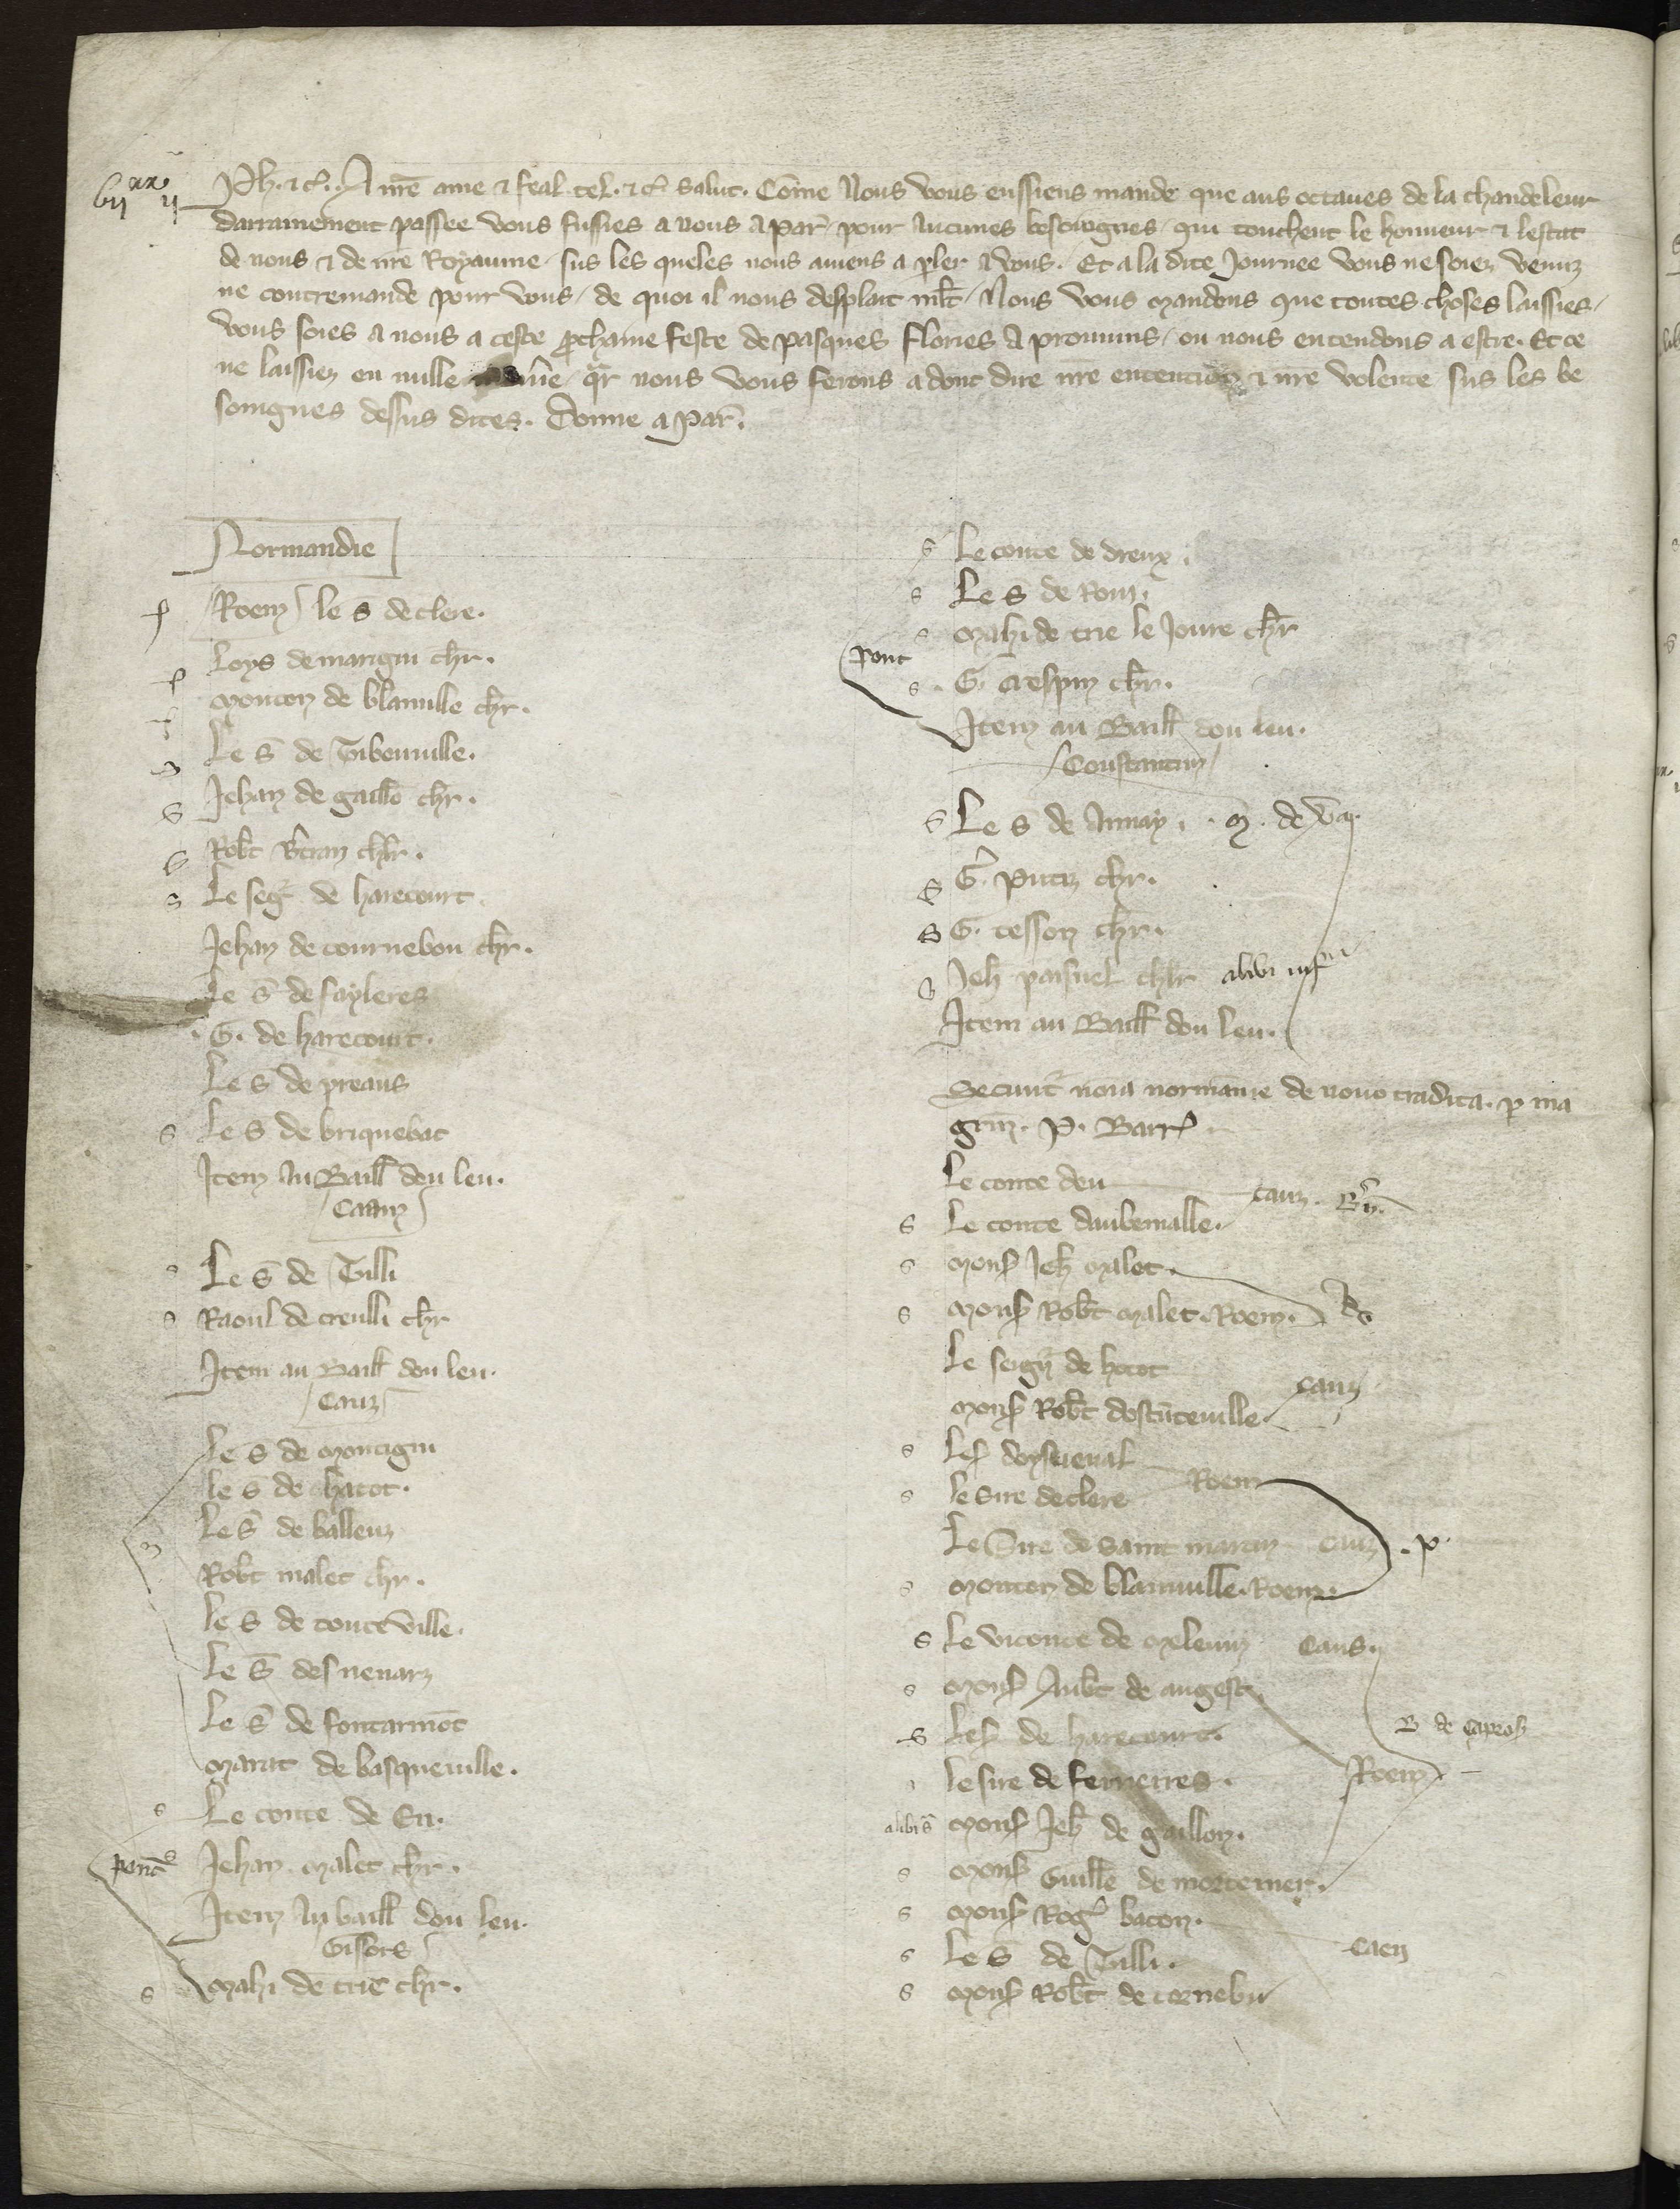 Ph. ⁊c̃. A nr̃e ame ⁊ feal. tel. ⁊c̃. salut. Cõme Nous vous eussiens mande que aus octaves de la chandeleur
darrainement passee vous fussies a nous a Par̃. pour aucunes besoignes, qui touchent le honneur ⁊ lestat
de nous ⁊ de nr̃e Royaume, sus les queles nous aviens a p̱ler a vous. Et a la dite Journee vous ne soiez venuz
ne contremande pour vous, de quoi il nous desplait ml̃t, Nous vous mandons que toutes choses laissies,
vous soies a nous a ceste p̃chaine feste de pasques flories a prouvins, ou nous entendons a estre. Et ce
ne laissiez en nulle quar nous vous ferons adont dire nr̃e entention ⁊ nr̃e volente sus les be
soingnes dessus dites. Donne a Par̃.
Normandie
Roem le S̃ de clere.
Loys de marigni chr̃.
Mouton de blainville chr̃.
Le S̃ de Tibouville.
Jehan de gaillõ chr̃.
Rob̃t B̃tran chl̃r.
Le seg̃r de harecourt.
Jehan de tournebou chr̃.
Le S̃ de fayleres
G. de harecourt.
Le S̃ de preaus
s Le S̃ de briquebat
Item au Baill̃ dou leu.
Caam
s Le S̃ de Tilli
s Raoul de creulli chr̃
Item au Baill̃ dou leu.
Cauz
Le S̃ de Montigni
le S̃ de hatot.
Le S̃ de balleuz
Rob̃t malet chr̃.
le S̃ de touteville.
Le S̃ desnevarz
Le S̃ de fontarmõt
Marat de basqueville.
s Le conte de Eu.
pont s Jehan Malet chr̃.
Item au baill̃ dou leu.
Gisors
s Mahi de trie chr̃.
s Le conte de dreux.
s Le S̃ de Roni.
s Mahi de trie le Jouvre chr̃
Pont
s G. Crespin chr̃.
Item au Baill̃ dou leu.
Constantin
s Le S̃ de Aunay.
s G̃. Putz chr̃.
s G. tesson chr̃.
s Jeh̃ paisnel chl̃r alibi inf̃
Item au Baill̃ dou leu.
Secunt̃ noĩa normãnie de novo tradita. p̱ ma
gr̃m. P. Barr̃.
Le conte deu
Cauz.
s Le conte daubemalle.
s Mons̃ Jeh̃ Malet.
s Mons̃ Rob̃t Malet. Roem.
Le seign̄r de hotot
Cauz
Mons̃ Rob̃t destũteville
s
s le Sire de clere Roem
Le Sire de Saint martin Cauz . P.
s Mouton de blainville. Roem.
s Le viconte de Meleun Caus.
s Mons̃ Aub̃t de angest.
s Le S̃ de harecourt.
le sire de ferrierres. Roem
alibi s Mons̃ Jeh̃ de gaillon.
s Mons̃ Guill̃e de mortemer.
s Mons̃ Rog̃ bacon.
Caen
s Le S̃ de Tilli.
s Mons̃ Rob̃t de cornebu